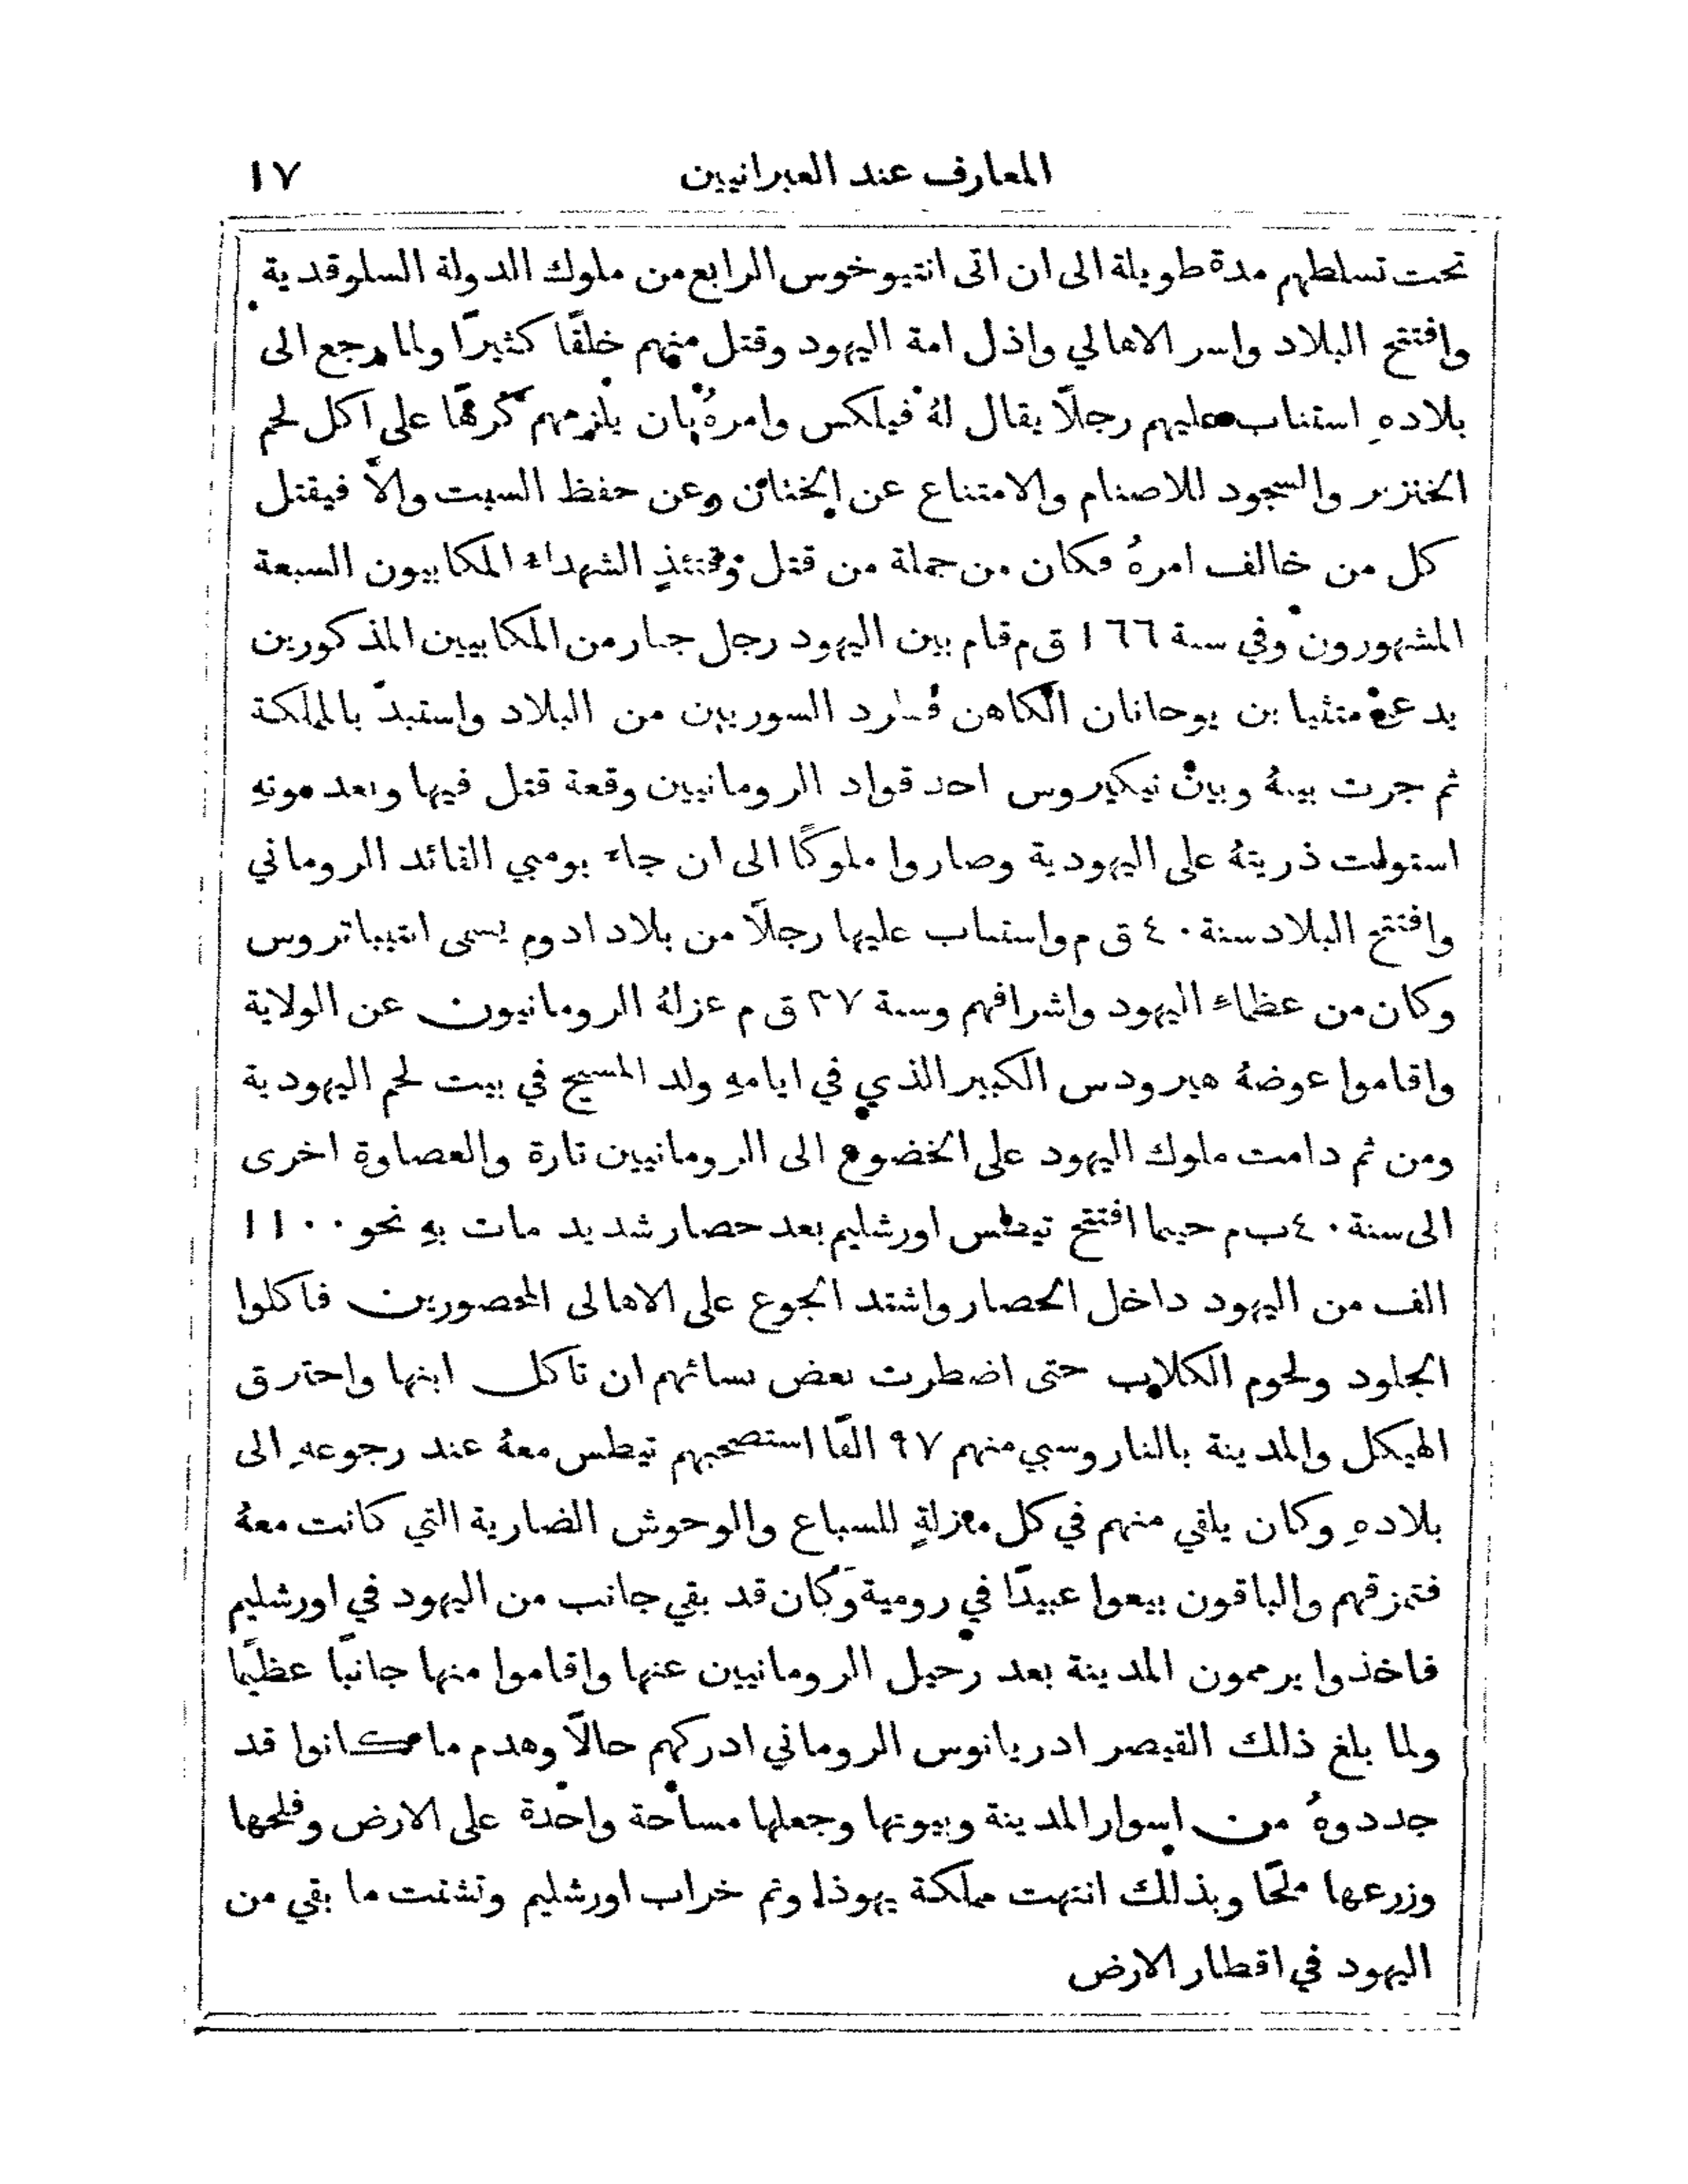 المعارف عند العبرانيين ١٧
تحت تسلطهم مدة طويلة الى ان اتى انتيوخوس الرابع من ملوك الدولة السلوقدية
وافتتح البلاد واسر الاهالي واذل امة اليهود وقتل منهم خلقًا كثيرًا ولما رجع الى
بلادهِ استناب عليهم رجلًا يقال لهُ فيلكس وامرهُ بان يلزمهم كرهًا على اكل لحم
الخنزير والسجود للاصنام والامتناع عن الختان وعن حفظ السبت والاّ فيقتل
كل من خالف امرهُ فكان من جملة من قتل وقتئذٍ الشهداء المكابيون السبعة
المشهورون وفي سنة ١٦٦ ق م قام بين اليهود رجل جبار من المكابيين المذكورين
يدعى متثيا بن يوحانان الكاهن فطرد السوريين من البلاد واستبدّ بالمملكة
ثم جرت بينهُ وبين نيكيروس احد قواد الرومانيين وقعة قتل فيها وبعد موتهِ
استولت ذريتهُ على اليهودية وصاروا ملوكًا الى ان جاء بومبي القائد الروماني
وافتتح البلاد سنة ٤٠ ق م واستناب عليها رجلًا من بلاد ادوم يسمى انتيباتروس
وكان من عظماء اليهود واشرافهم وسنة ٣٧ ق م عزلهُ الرومانيون عن الولاية
واقاموا عوضهُ هيرودس الكبير الذي في ايامهِ ولد المسيح في بيت لحم اليهودية
ومن ثم دامت ملوك اليهود على الخضوع الى الرومانيين تارة والعصاوة اخرى
الى سنة ٤٠ ب م حينما افتتح تيطس اورشليم بعد حصار شديد مات بهِ نحو ١١٠٠
الف من اليهود داخل الحصار واشتد الجوع على الاهالى المحصورين فاكلوا
الجلود ولحوم الكلاب حتى اضطرت بعض نسائهم ان تاكل ابنها واحترق
الهيكل والمدينة بالنار وسبي منهم ٩٧ الفًا استصحبهم تيطس معهُ عند رجوعهِ الى
بلادهِ وكان يلقي منهم في كل منزلةٍ للسباع والوحوش الضارية التي كانت معهُ
فتمزقهم والباقون بيعوا عبيدًا في رومية وكان قد بقي جانب من اليهود في اورشليم
فاخذوا يرممون المدينة بعد رحيل الرومانيين عنها واقاموا منها جانبًا عظيمًا
ولما بلغ ذلك القيصر ادريانوس الروماني ادركهم حالًا وهدم ما كانوا قد
جددوهُ من اسوار المدينة وبيوتها وجعلها مساحة واحدة على الارض وفلحها
وزرعها ملحًا وبذلك انتهت مملكة يهوذا وتم خراب اورشليم وتشتت ما بقي من
اليهود في اقطار الارض